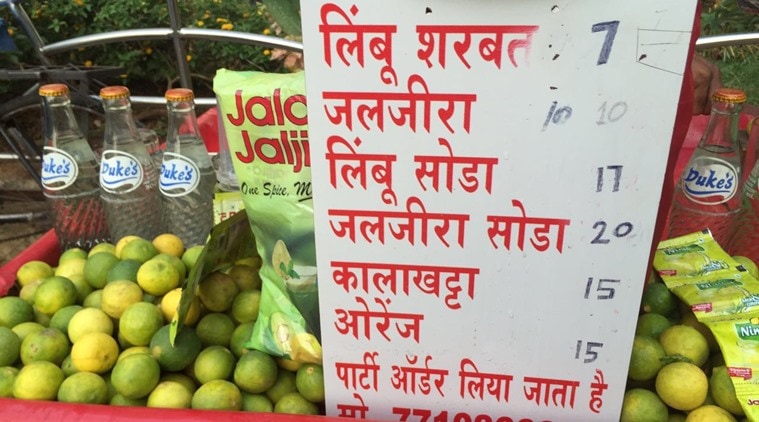 लिंबू शरबत 7
जलजीरा 10 10
लिंबू सोडा 17
जलजीरा सोडा 20
कालाखट्टा 15
ओरेंज 15
पार्टी ऑर्डर लिया जाता है
Duke's
Duke's
Duke's
Jalo
Jalji
One Spice, M
Duke's